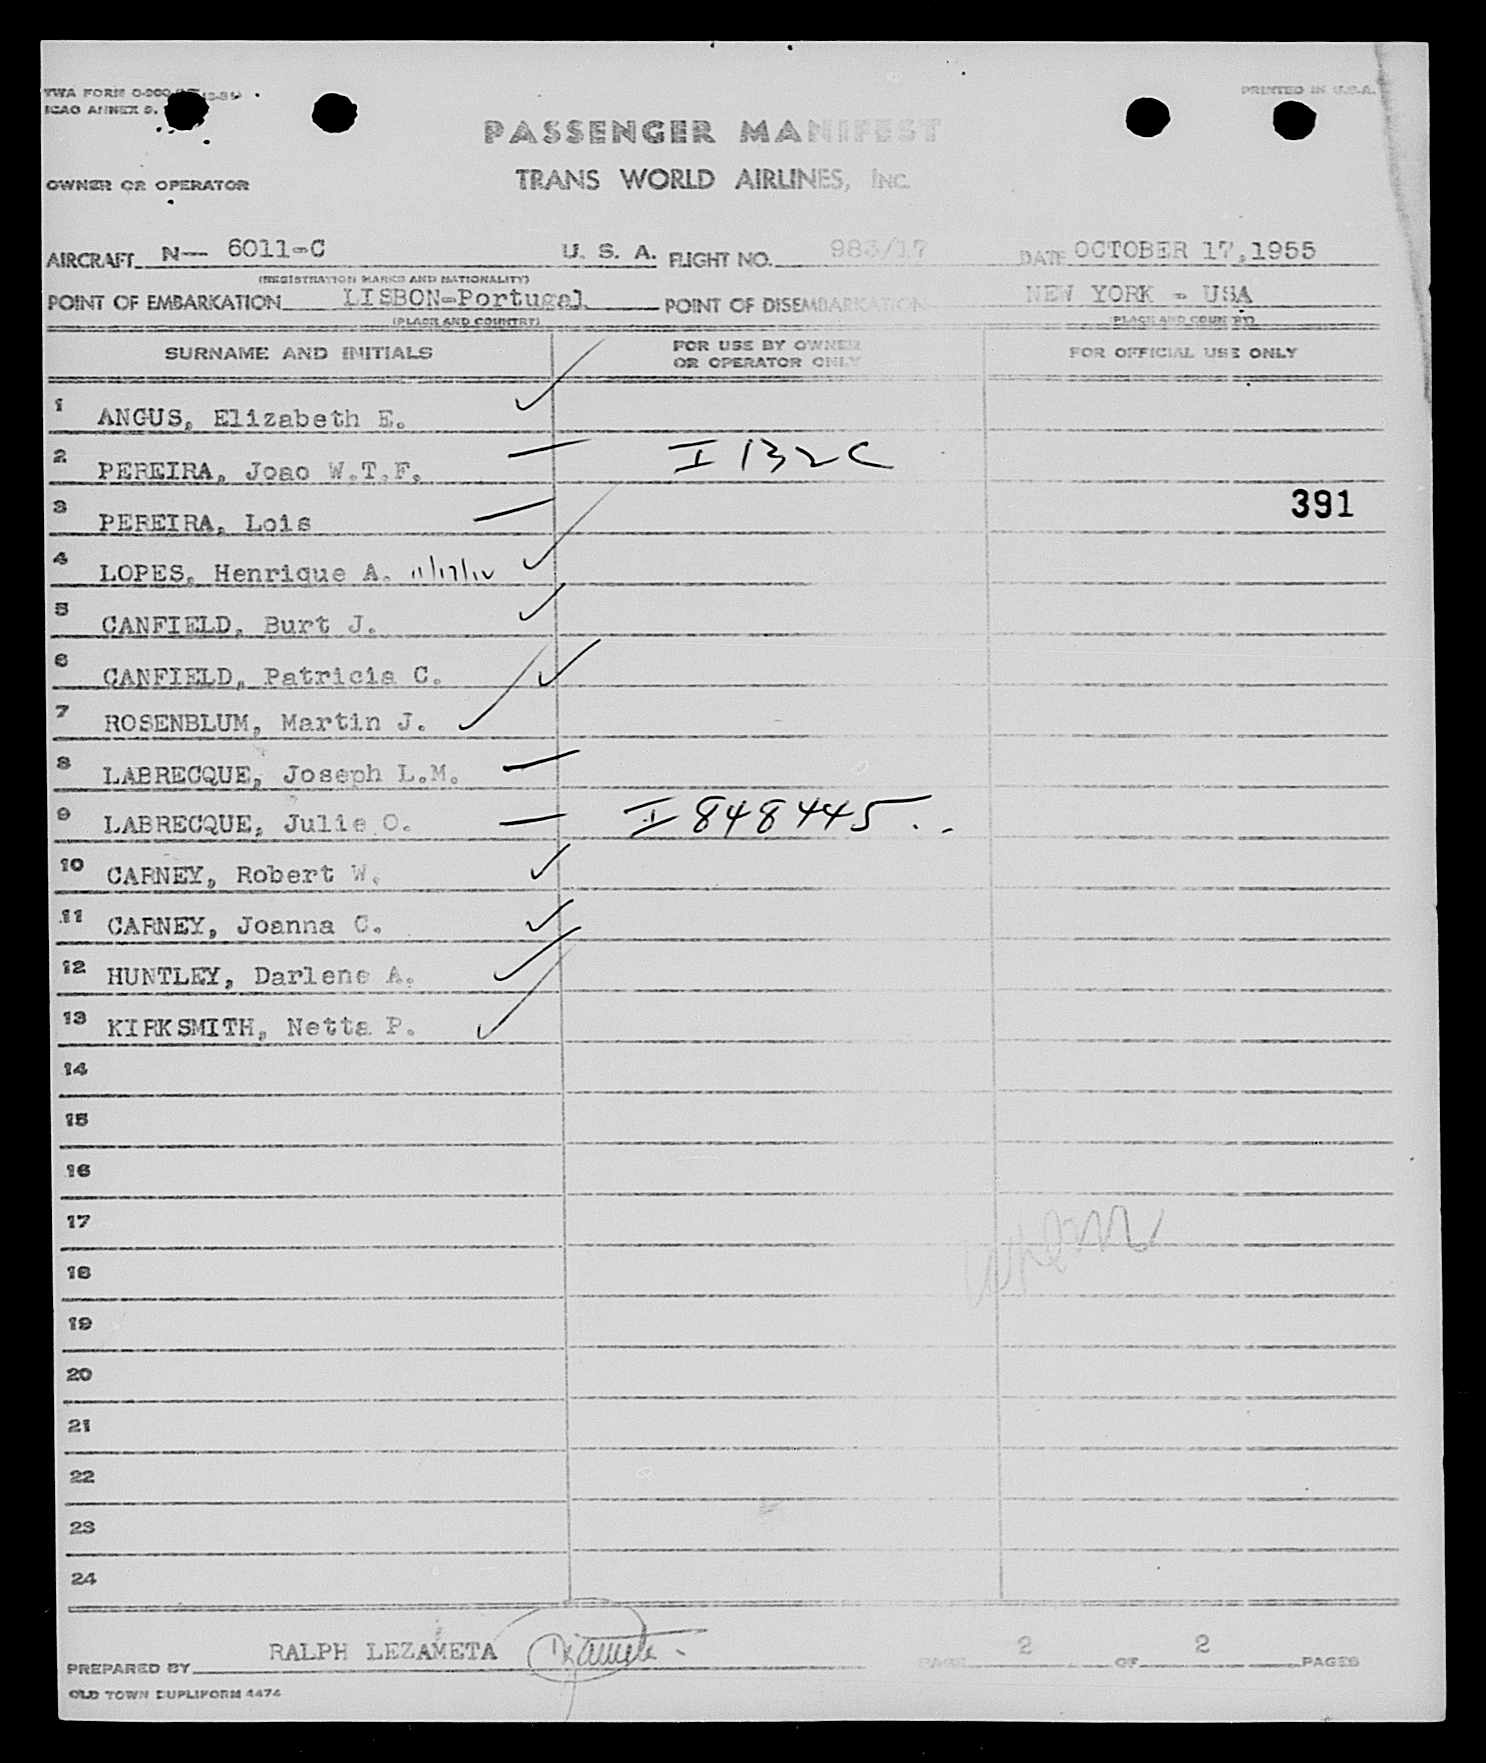 TWA FORM O-
PRINTED IN U.S.A.
ICAO ANNEX 9.
PASSENGER MANIFEST
OWNER OR OPERATOR
TRANS WORLD AIRLINES, INC.
AIRCRAFT N— 6011-C U. S. A. FLIGHT NO. 983/17 DATE OCTOBER 17,1955
(REGISTRATION MARKS AND NATIONALITY)
POINT OF EMBARKATION LISBON-Portugal POINT OF DISEMBARKATION NEW YORK - USA
(PLACE AND COUNTRY) (PLACE AND COUNTRY)
SURNAME AND INITIALS FOR USE BY OWNER OR OPERATOR ONLY FOR OFFICIAL USE ONLY
1 ANGUS, Elizabeth E.
2 PEREIRA, Joao W.T.F. I 132C
3 PEREIRA, Lois 391
4 LOPES, Henrique A.
5 CANFIELD, Burt J.
6 CANFIELD, Patricia C.
7 ROSENBLUM, Martin J.
8 LABRECQUE, Joseph L.M.
9 LABRECQUE, Julie O. I 848445
10 CARNEY, Robert W.
11 CARNEY, Joanna C.
12 HUNTLEY, Darlene A.
13 KIRKSMITH, Netta P.
14
15
16
17
18
19
20
21
22
23
24
PREPARED BY RALPH LEZAMETA PAGE 2 OF 2 PAGES
OLD TOWN DUPLIFORM 4474